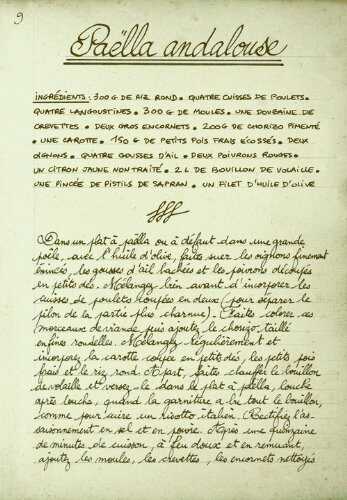 9
Paëlla andalouse
INGRÉDIENTS : 300 G DE RIZ ROND • QUATRE CUISSES DE POULETS •
QUATRE LANGOUSTINES • 300 G DE MOULES • UNE DOUZAINE DE
CREVETTES • DEUX GROS ENCORNETS • 200G DE CHORIZO PIMENTÉ
• UNE CAROTTE • 150 G DE PETITS POIS FRAIS ÉCOSSÉS • DEUX
OIGNONS • QUATRE GOUSSES D'AIL • DEUX POIVRONS ROUGES •
UN CITRON JAUNE NON TRAITÉ • 2 L DE BOUILLON DE VOLAILLE •
UNE PINCÉE DE PISTILS DE SAFRAN • UN FILET D'HUILE D'OLIVE
Dans un plat à paëlla ou à défaut dans une grande
poêle, avec l'huile d'olive, faites suer les oignons finement
émincés, les gousses d'ail hachées et les poivrons découpés
en petits dés. Mélangez bien avant d'incorporer les
cuisses de poulets coupées en deux (pour séparer le
pilon de la partie plus charnue). Faites colorer ces
morceaux de viande puis ajoutez le chorizo taillé
en fines rondelles. Mélangez régulièrement et
incorporez la carotte coupée en petits dés, les petits pois
frais et le riz rond. A part, faites chauffer le bouillon
de volaille et versez-le dans le plat à paëlla, louche
après louche, quand la garniture a bu tout le bouillon,
comme pour cuire un risotto italien. Rectifiez l'as-
saisonnement en sel et en poivre. Après une quinzaine
de minutes de cuisson, à feu doux et en remuant,
ajoutez les moules, les crevettes, les encornets nettoyés